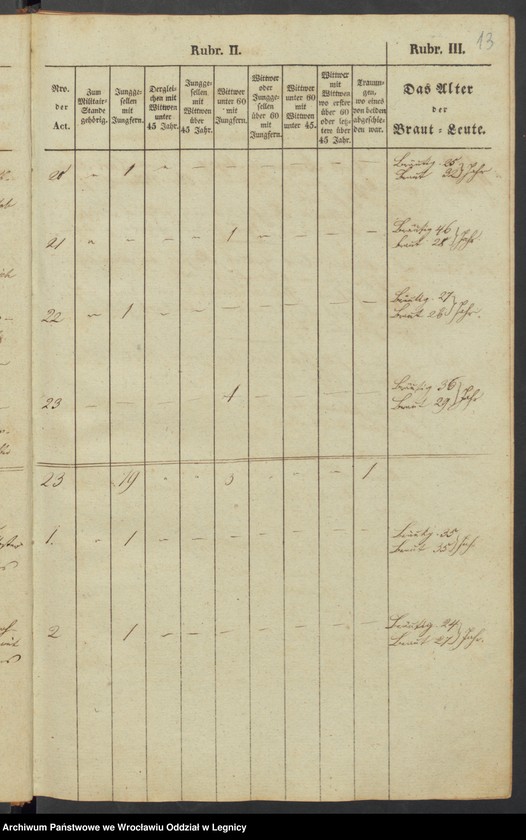 13
Rubr. II.
Rubr. III.
Nro. der Act.
Zum Militair-Stande gehörig.
Jungge-sellen mit Jungfern.
Derglei-chen mit Wittwen unter 45 Jahr.
Jungge-sellen mit Wittwen über 45 Jahr.
Wittwer unter 60 mit Jungfern.
Wittwer oder Jungge-sellen über 60 mit Jungfern.
Wittwer unter 60 mit Wittwen unter 45.
Wittwer mit Wittwen wo erster über 60 oder letz-tere über 45 Jahr.
Trauun-gen, wo eines von beiden abgeschie-den war.
Das Alter der Braut-Leute.
20 - 1 - - - - - - -
Braut 32 Jahr
21 - - - - 1 - - - -
Bräutig 46
Braut 28 Jahr
22 - 1 - - - - - - -
Bräutig. 27
Braut 26 Jahr.
23 - - - - 1 - - - -
Bräutig 36
Braut 29 Jahr
23 19 - - 3 - - - 1
1. - 1 - - - - - - -
Bräutig. 35
Braut 35 Jahr
2 1 - - - - - - -
Bräutig. 24
Braut 27 Jahr.
Archiwum Państwowe we Wrocławiu Oddział w Legnicy